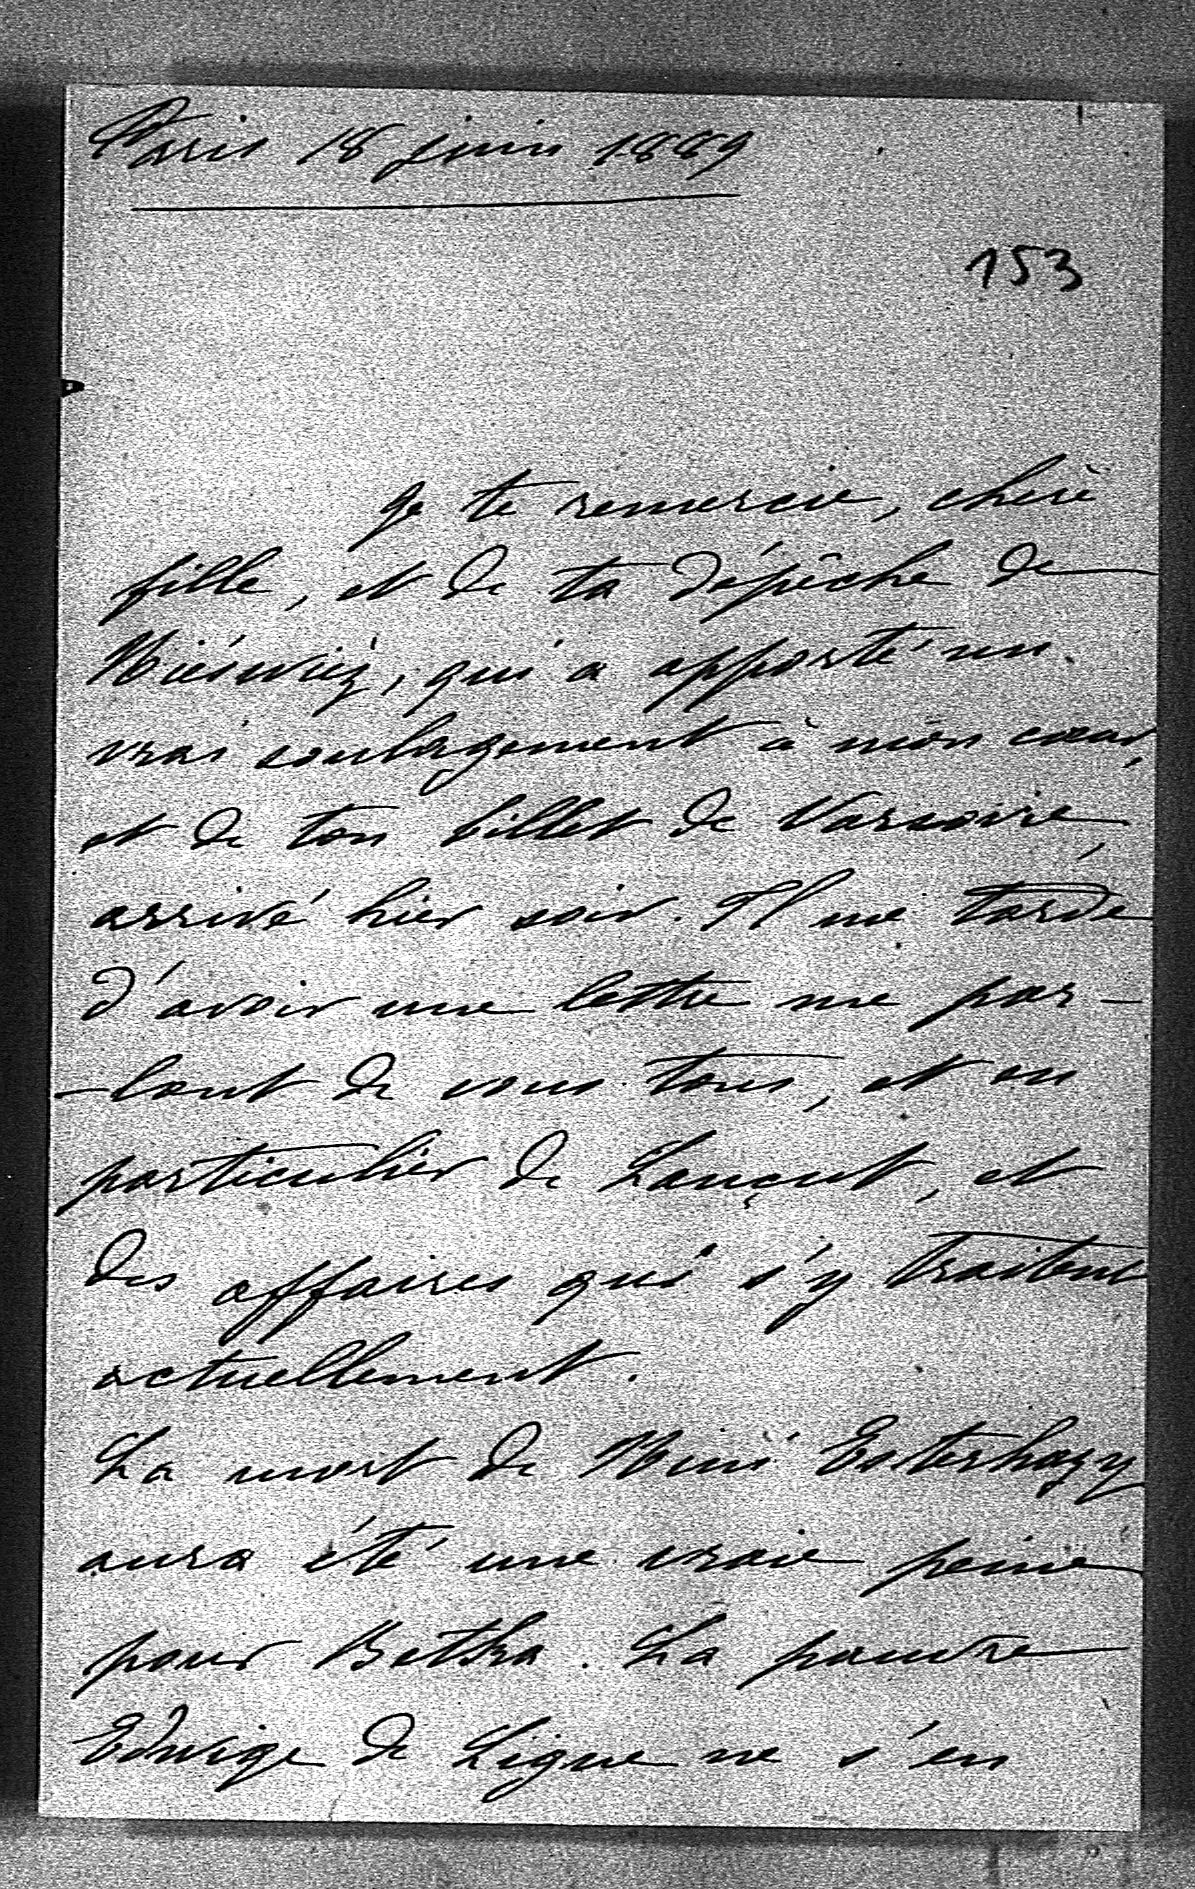 Paris 18 juin 1889
153
Je te remercie, chère
fille, et de ta dépêche de
Niéswiéz, qui a apporté un
vrai soulagement à mon cœur,
et de ton billet de Varsovie,
arrivé hier soir. Il me tarde
d'avoir une lettre me par-
-lant de vous tous, et en
particulier de Lançut, et
des affaires qui s'y traitent
actuellement.
La mort de Esterhazy
aura été une vraie peine
pour Bethka. La pauvre
Edwige de Ligne ne s'en